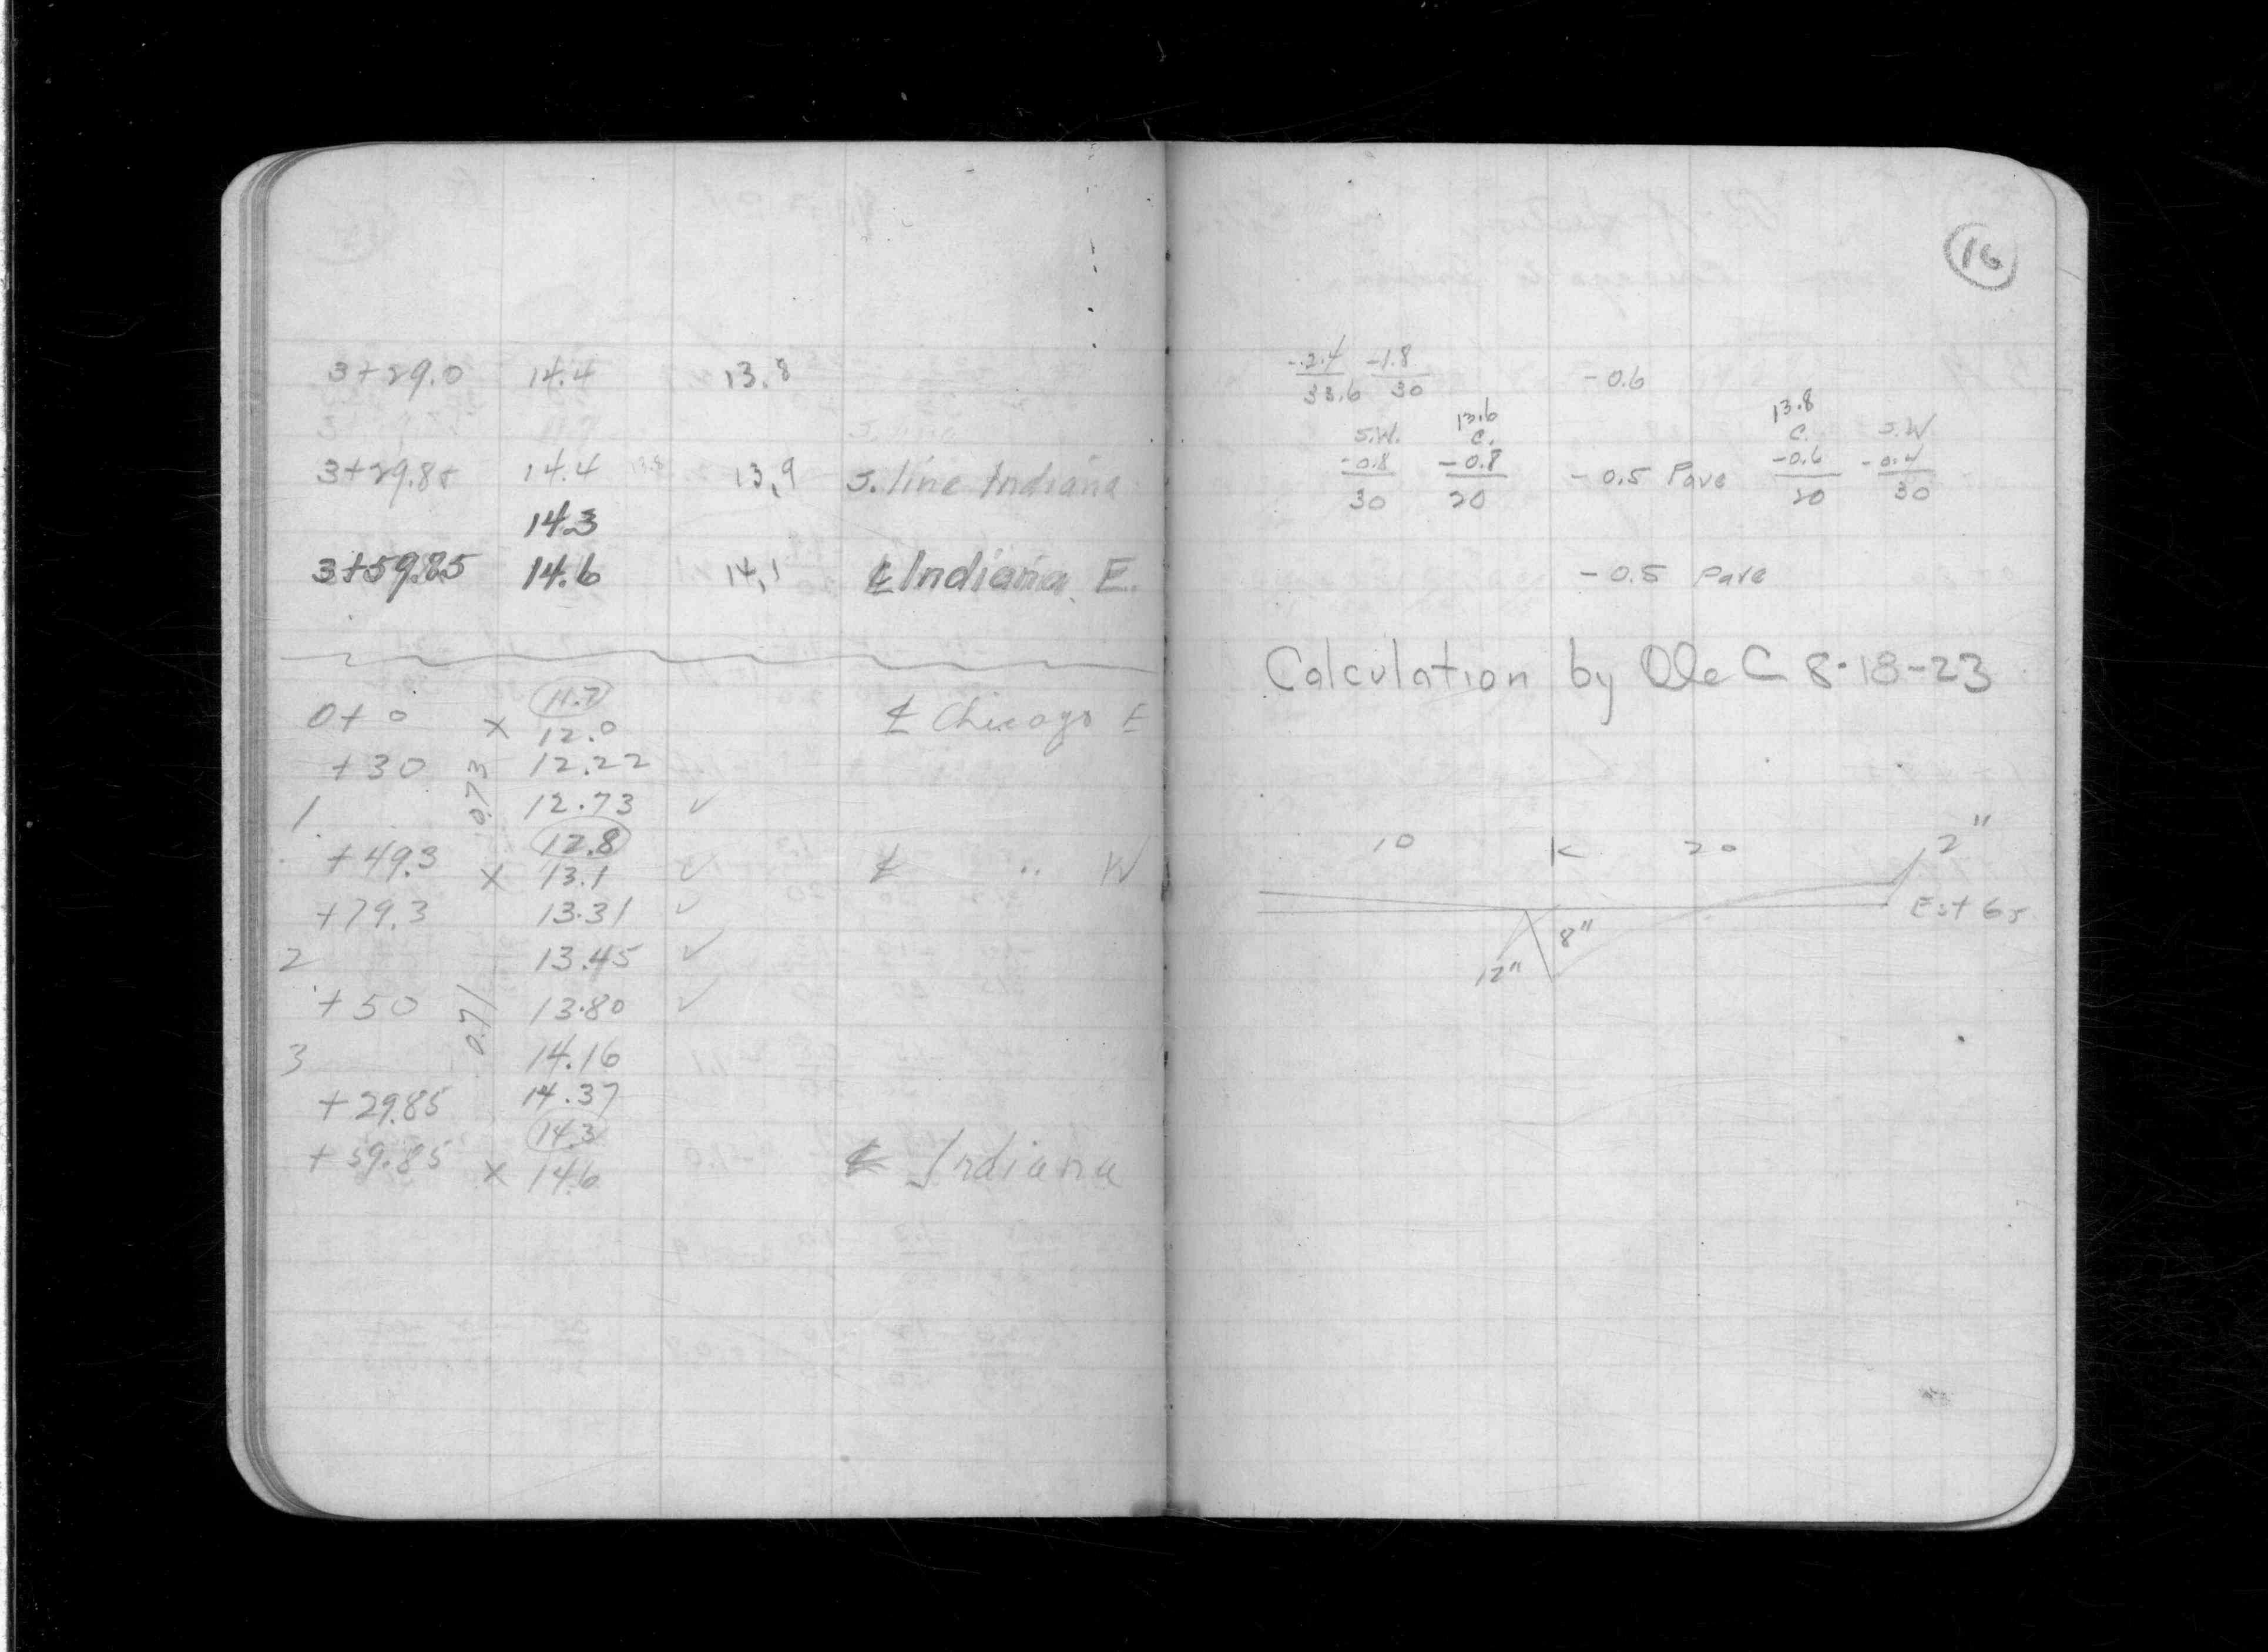 3+29.0 14.4 13.8
3+29.85 14.4 13.9 S. line Indiana
14.3
3+59.85 14.6 14.1 ℄ Indiana E.
11.7
0+0 x 12.0 ℄ Chicago E
+30 12.22
0.73
1 12.73 ✓
12.8
+49.3 x 13.1 ✓ ℄ " W
+79.3 13.31 ✓
2 13.45 ✓
+50 13.80 ✓
0.71
3 14.16
+29.85 14.37
14.3
+59.85 x 14.6 ℄ Indiana
16
-2.4 -1.8 -0.6
33.6 30
13.6 13.8
S.W. C. C. S.W.
-0.8 -0.8 -0.5 Pave -0.6 -0.4
30 20 20 30
-0.5 Pave
Calculation by Ole C 8-18-23
10 K 20 2"
8"
12"